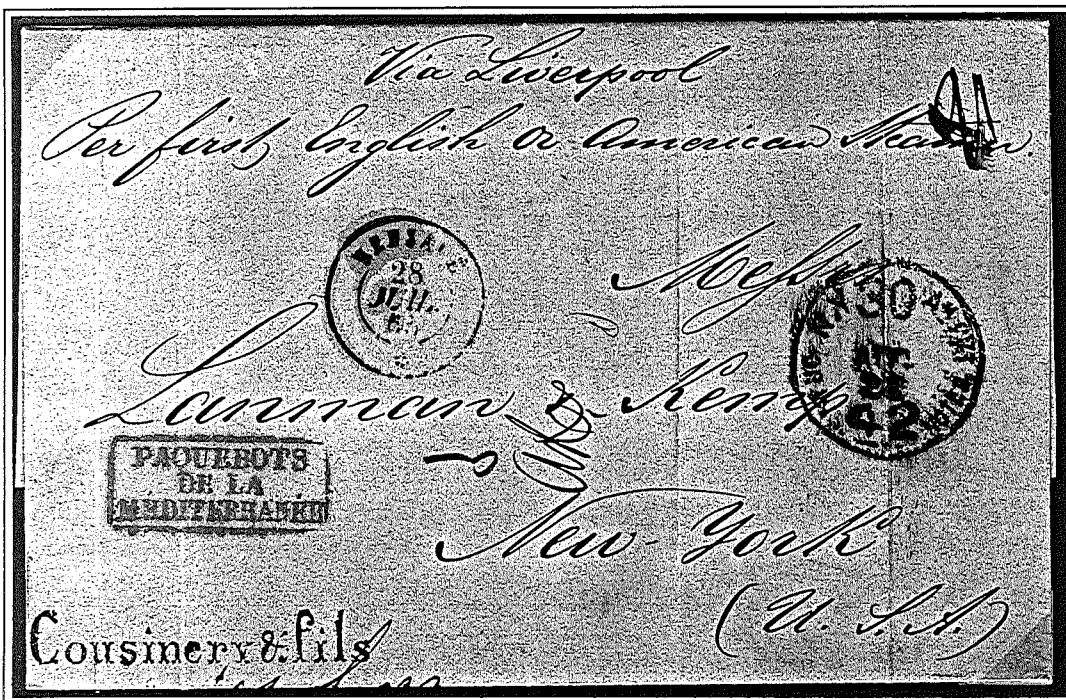 Via Liverpool
Per first English or American Steamer.
28
JUIL.
Messrs
30
42
Lanman & Kemp
PAQUEBOTS
DE LA
MEDITERRANÉE
New-York
(U. S. A.)
Cousinery & fils